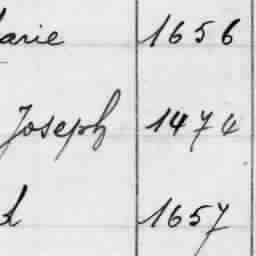 arie 1656
Joseph 1474
d 1657